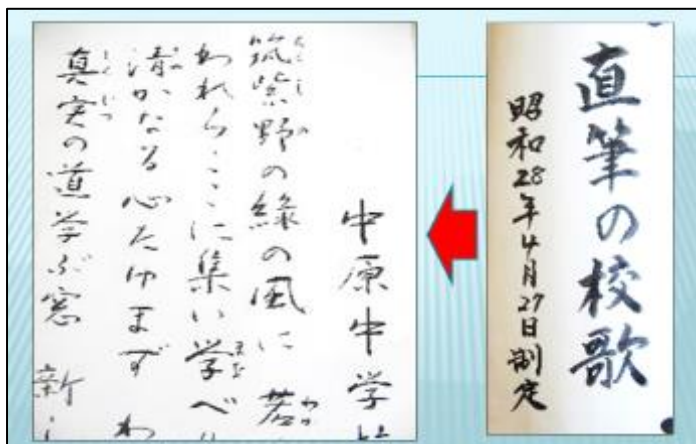 直筆の校歌
昭和28年4月27日制定
中原中学
筑紫野の緑の風に 若
われらここに集い学べり
清かなる心たゆまず わ
真実の道学ぶ窓 新し